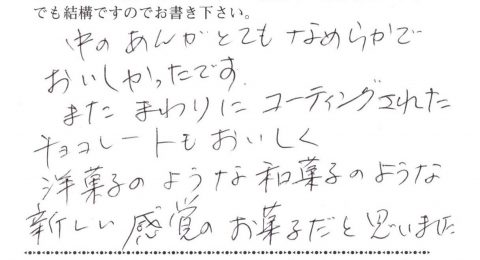 でも結構ですのでお書き下さい。
中のあんがとてもなめらかで
おいしかったです.
またまわりにコーティングされた
チョコレートもおいしく
洋菓子のような和菓子のような
新しい感覚のお菓子だと思いました